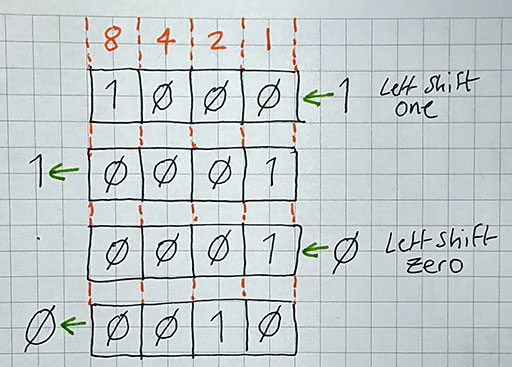 8 4 2 1
1 Ø Ø Ø ← 1 Left Shift
one
1 ← Ø Ø Ø 1
Ø Ø Ø 1 ← Ø Left Shift
zero
Ø ← Ø Ø 1 Ø